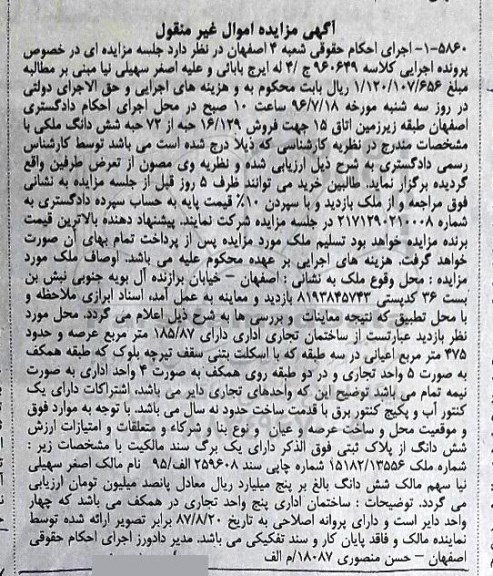 آگهی مزایده اموال غیر منقول
۱-۵۸۶۰- اجرای احکام حقوقی شعبه ۴ اصفهان در نظر دارد جلسه مزایده ای در خصوص
پرونده اجرایی کلاسه ۹۶۰۶۴۹ ج /۴ له ایرج بابائی و علیه اصغر سهیلی نیا مبنی بر مطالبه
مبلغ ۱/۱۲۰/۱۰۷/۶۵۶ ریال بابت محکوم به و هزینه های اجرایی و حق الاجرای دولتی
در روز سه شنبه مورخه ۹۶/۷/۱۸ ساعت ۱۰ صبح در محل اجرای احکام دادگستری
اصفهان طبقه زیرزمین اتاق ۱۵ جهت فروش ۱۶/۱۲۹ حبه از ۷۲ حبه شش دانگ ملکی با
مشخصات مندرج در نظریه کارشناسی که ذیلا درج شده است می باشد توسط کارشناس
رسمی دادگستری به شرح ذیل ارزیابی شده و نظریه وی مصون از تعرض طرفین واقع
گردیده برگزار نماید. طالبین خرید می توانند ظرف ۵ روز قبل از جلسه مزایده به نشانی
فوق مراجعه و از ملک بازدید و با سپردن ۱۰٪ قیمت پایه به حساب سپرده دادگستری به
شماره ۲۱۷۱۲۹۰۲۱۰۰۰۸ در جلسه مزایده شرکت نمایند. پیشنهاد دهنده بالاترین قیمت
برنده مزایده خواهد بود تسلیم ملک مورد مزایده پس از پرداخت تمام بهای آن صورت
خواهد گرفت. هزینه های اجرایی بر عهده محکوم علیه می باشد. اوصاف ملک مورد
مزایده : محل وقوع ملک به نشانی : اصفهان – خیابان برازنده آل بویه جنوبی نبش بن
بست ۳۶ کدپستی ۸۱۹۳۸۴۵۷۴۳ بازدید و معاینه به عمل آمد، اسناد ابرازی ملاحظه و
با محل تطبیق که نتیجه معاینات و بررسی ها به شرح ذیل اعلام می گردد. محل مورد
نظر بازدید عبارتست از ساختمان تجاری اداری دارای ۱۸۵/۸۷ متر مربع عرصه و حدود
۴۷۵ متر مربع اعیانی در سه طبقه که با اسکلت بتنی سقف تیرچه بلوک که طبقه همکف
به صورت ۵ واحد تجاری و در دو طبقه روی همکف به صورت ۴ واحد اداری به صورت
نیمه تمام می باشد توضیح این که واحدهای تجاری دایر می باشد، اشتراکات دارای یک
کنتور آب و پکیج کنتور برق با قدمت ساخت حدود نه سال می باشد. با توجه به موارد فوق
و موقعیت محل و ساخت عرصه و عیان و نوع بنا و شرکاء و متعلقات و امتیازات ارزش
شش دانگ از پلاک ثبتی فوق الذکر دارای یک برگ سند مالکیت با مشخصات زیر :
شماره ملک ۱۵۱۸۲/۱۳۵۵۶ شماره چاپی سند ۲۵۹۶۰۸ الف/۹۵ نام مالک اصغر سهیلی
نیا سهم مالک شش دانگ بالغ بر پنج میلیارد ریال معادل پانصد میلیون تومان ارزیابی
می گردد. توضیحات : ساختمان اداری پنج واحد تجاری در همکف می باشد که چهار
واحد دایر است و دارای پروانه اصلاحی به تاریخ ۸۷/۸/۲۰ برابر تصویر ارائه شده توسط
نماینده مالک و فاقد پایان کار و سند تفکیکی می باشد. مدیر دادورز اجرای احکام حقوقی
اصفهان – حسن منصوری ۱۸۰۸۷/م الف